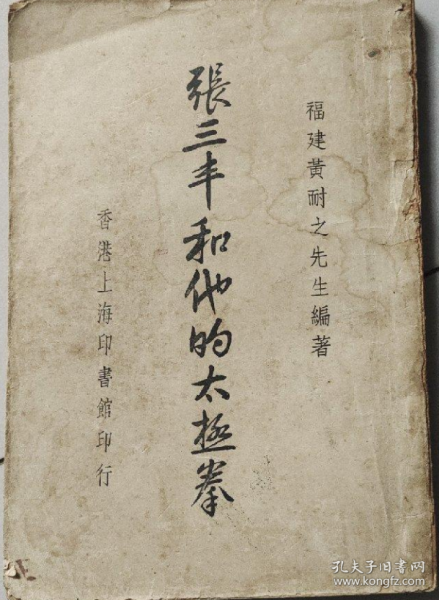 福建黃耐之先生編著
張三丰和他的太極拳
香港上海印書館印行
孔夫子旧书网
book.kongfz.com